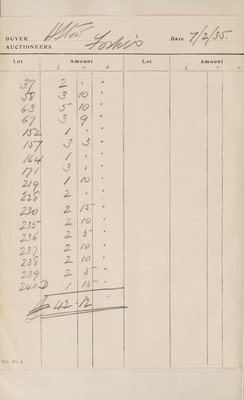 BUYER
AUCTIONEERS
Date 7/2/35.
Lot Amount Lot Amount
£ s. d. £ s. d.
37 2 " "
58 3 10 "
63 5 10 "
67 3 9 "
152 1 " "
157 3 3 "
164 1 " "
171 3 " "
219 1 10 "
228 2 " "
230 2 15 "
235 2 10 "
236 2 5 "
237 2 10 "
238 2 10 "
239 2 5 "
240D 1 15 "
£ 42 12 "